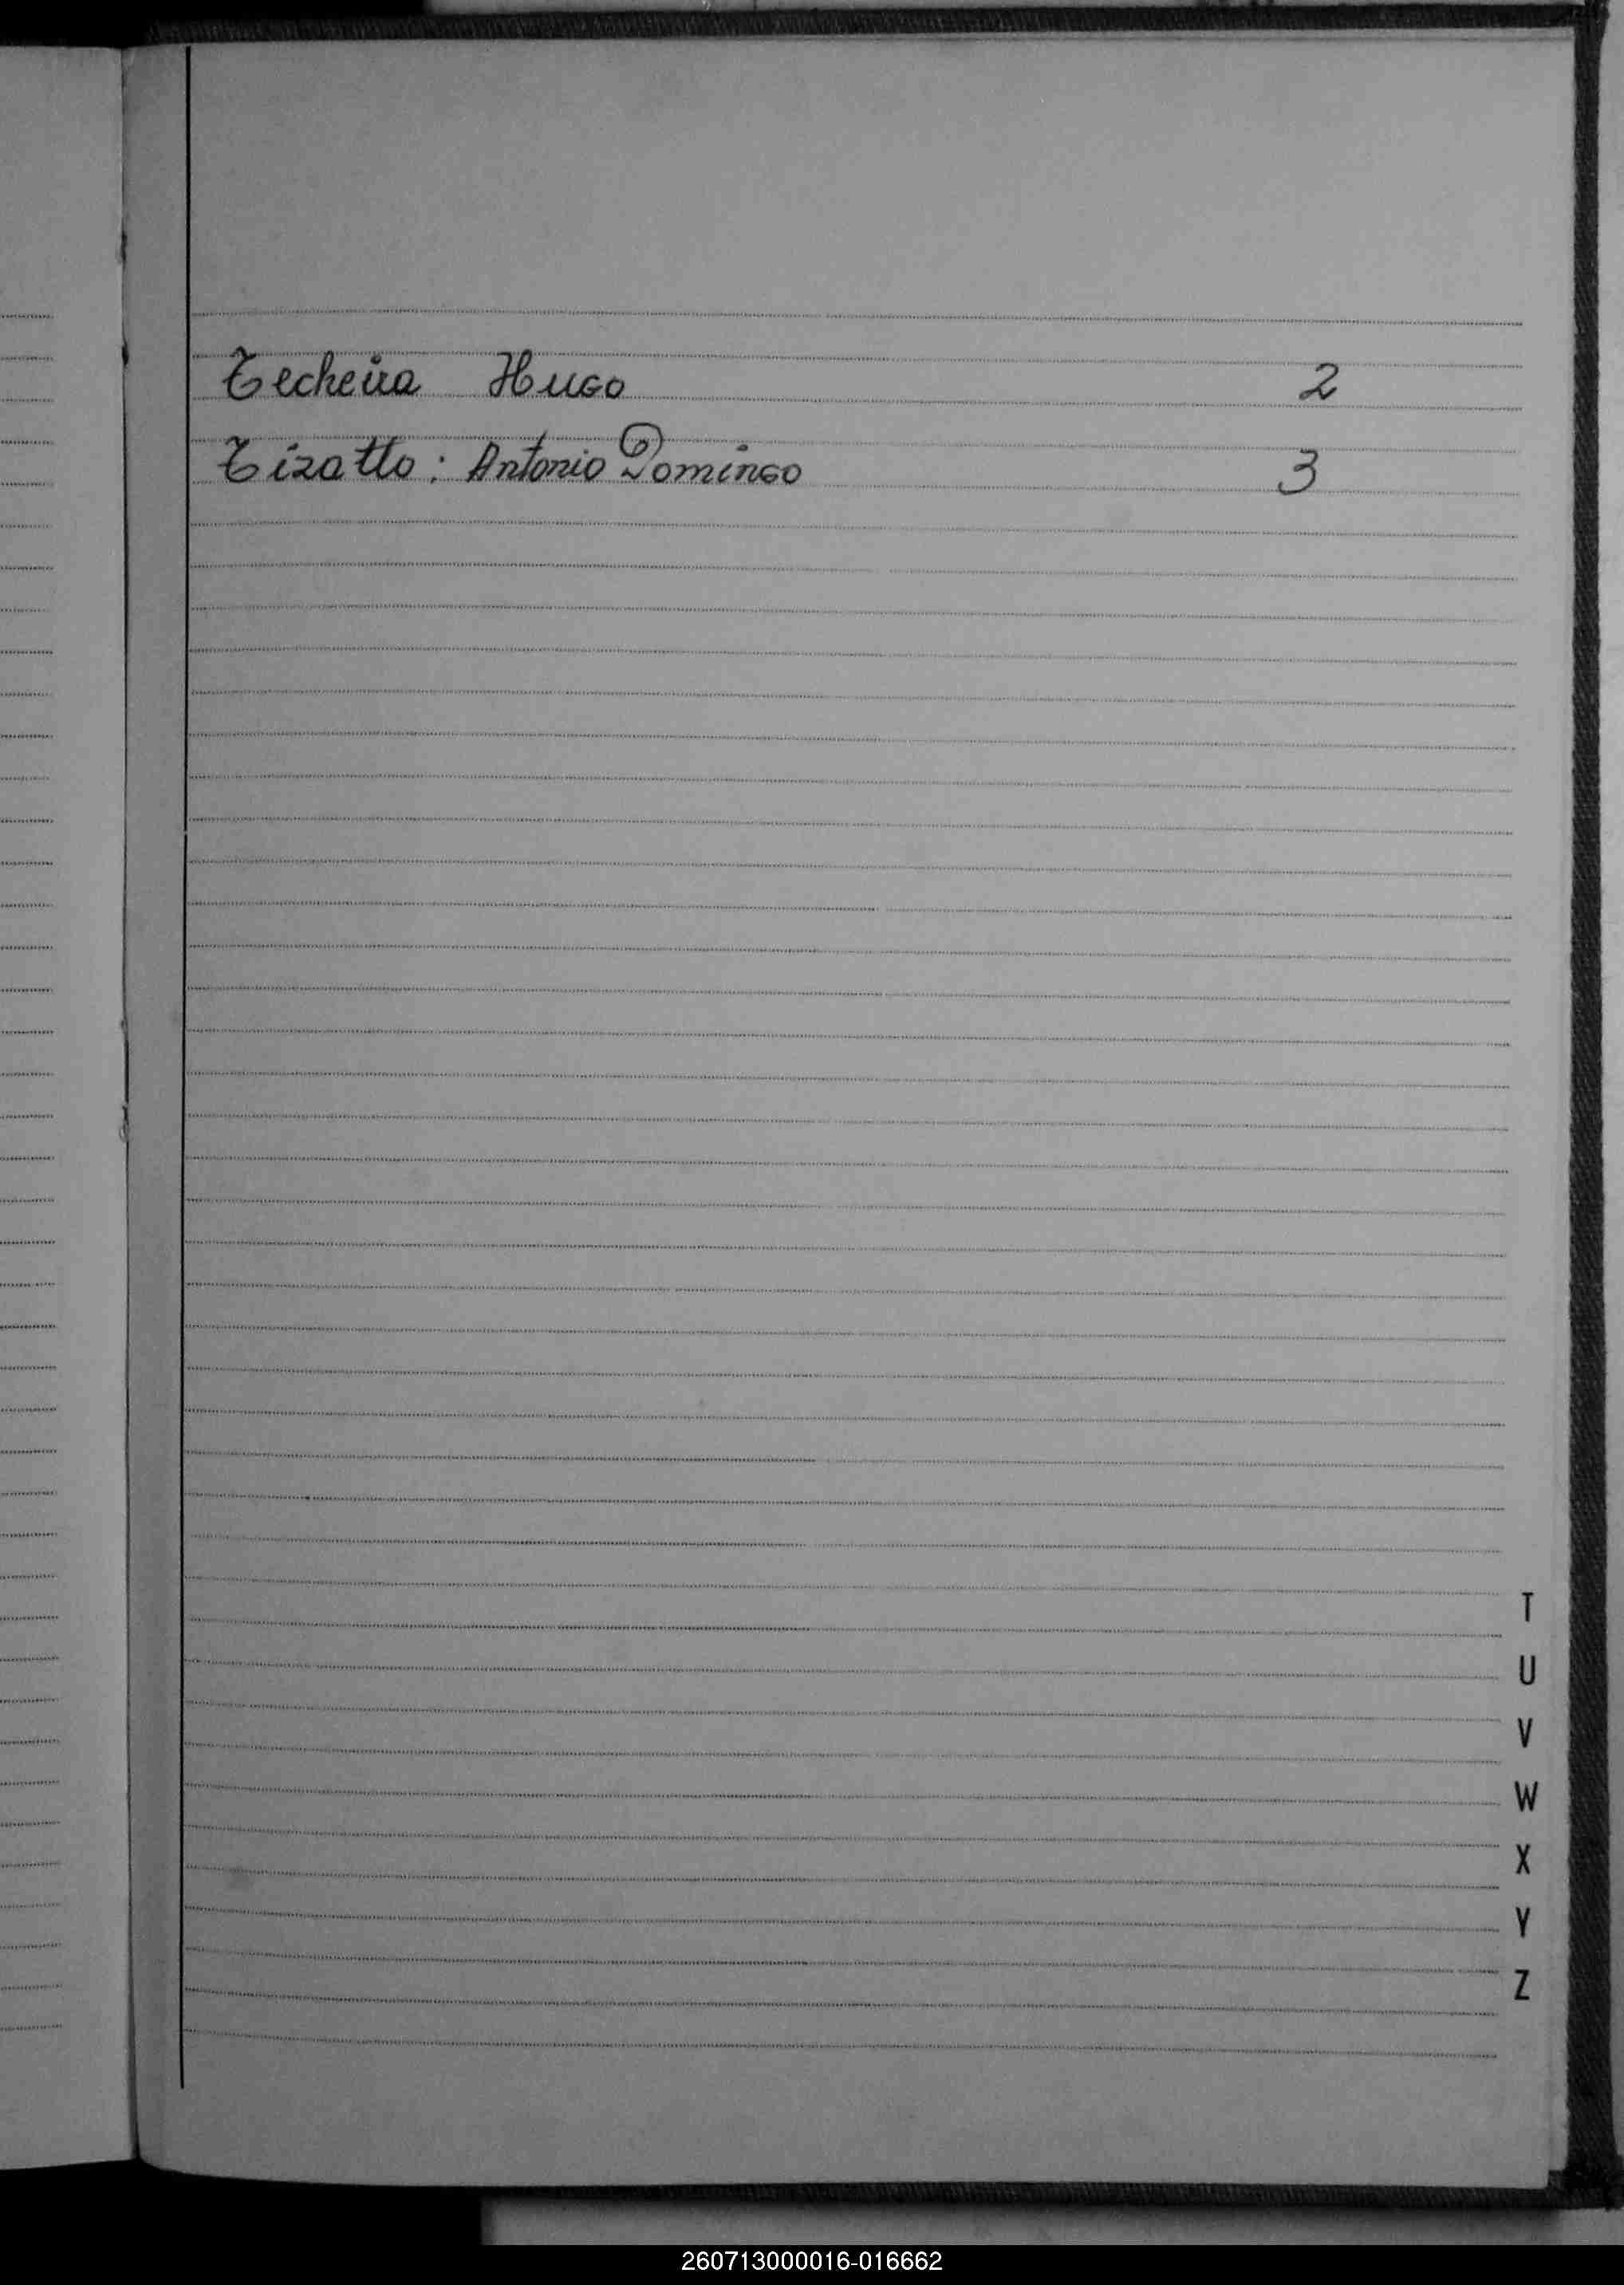 Techeira Hugo 2
Tizatto: Antonio Domingo 3
T
U
V
W
X
Y
Z
260713000016-016662